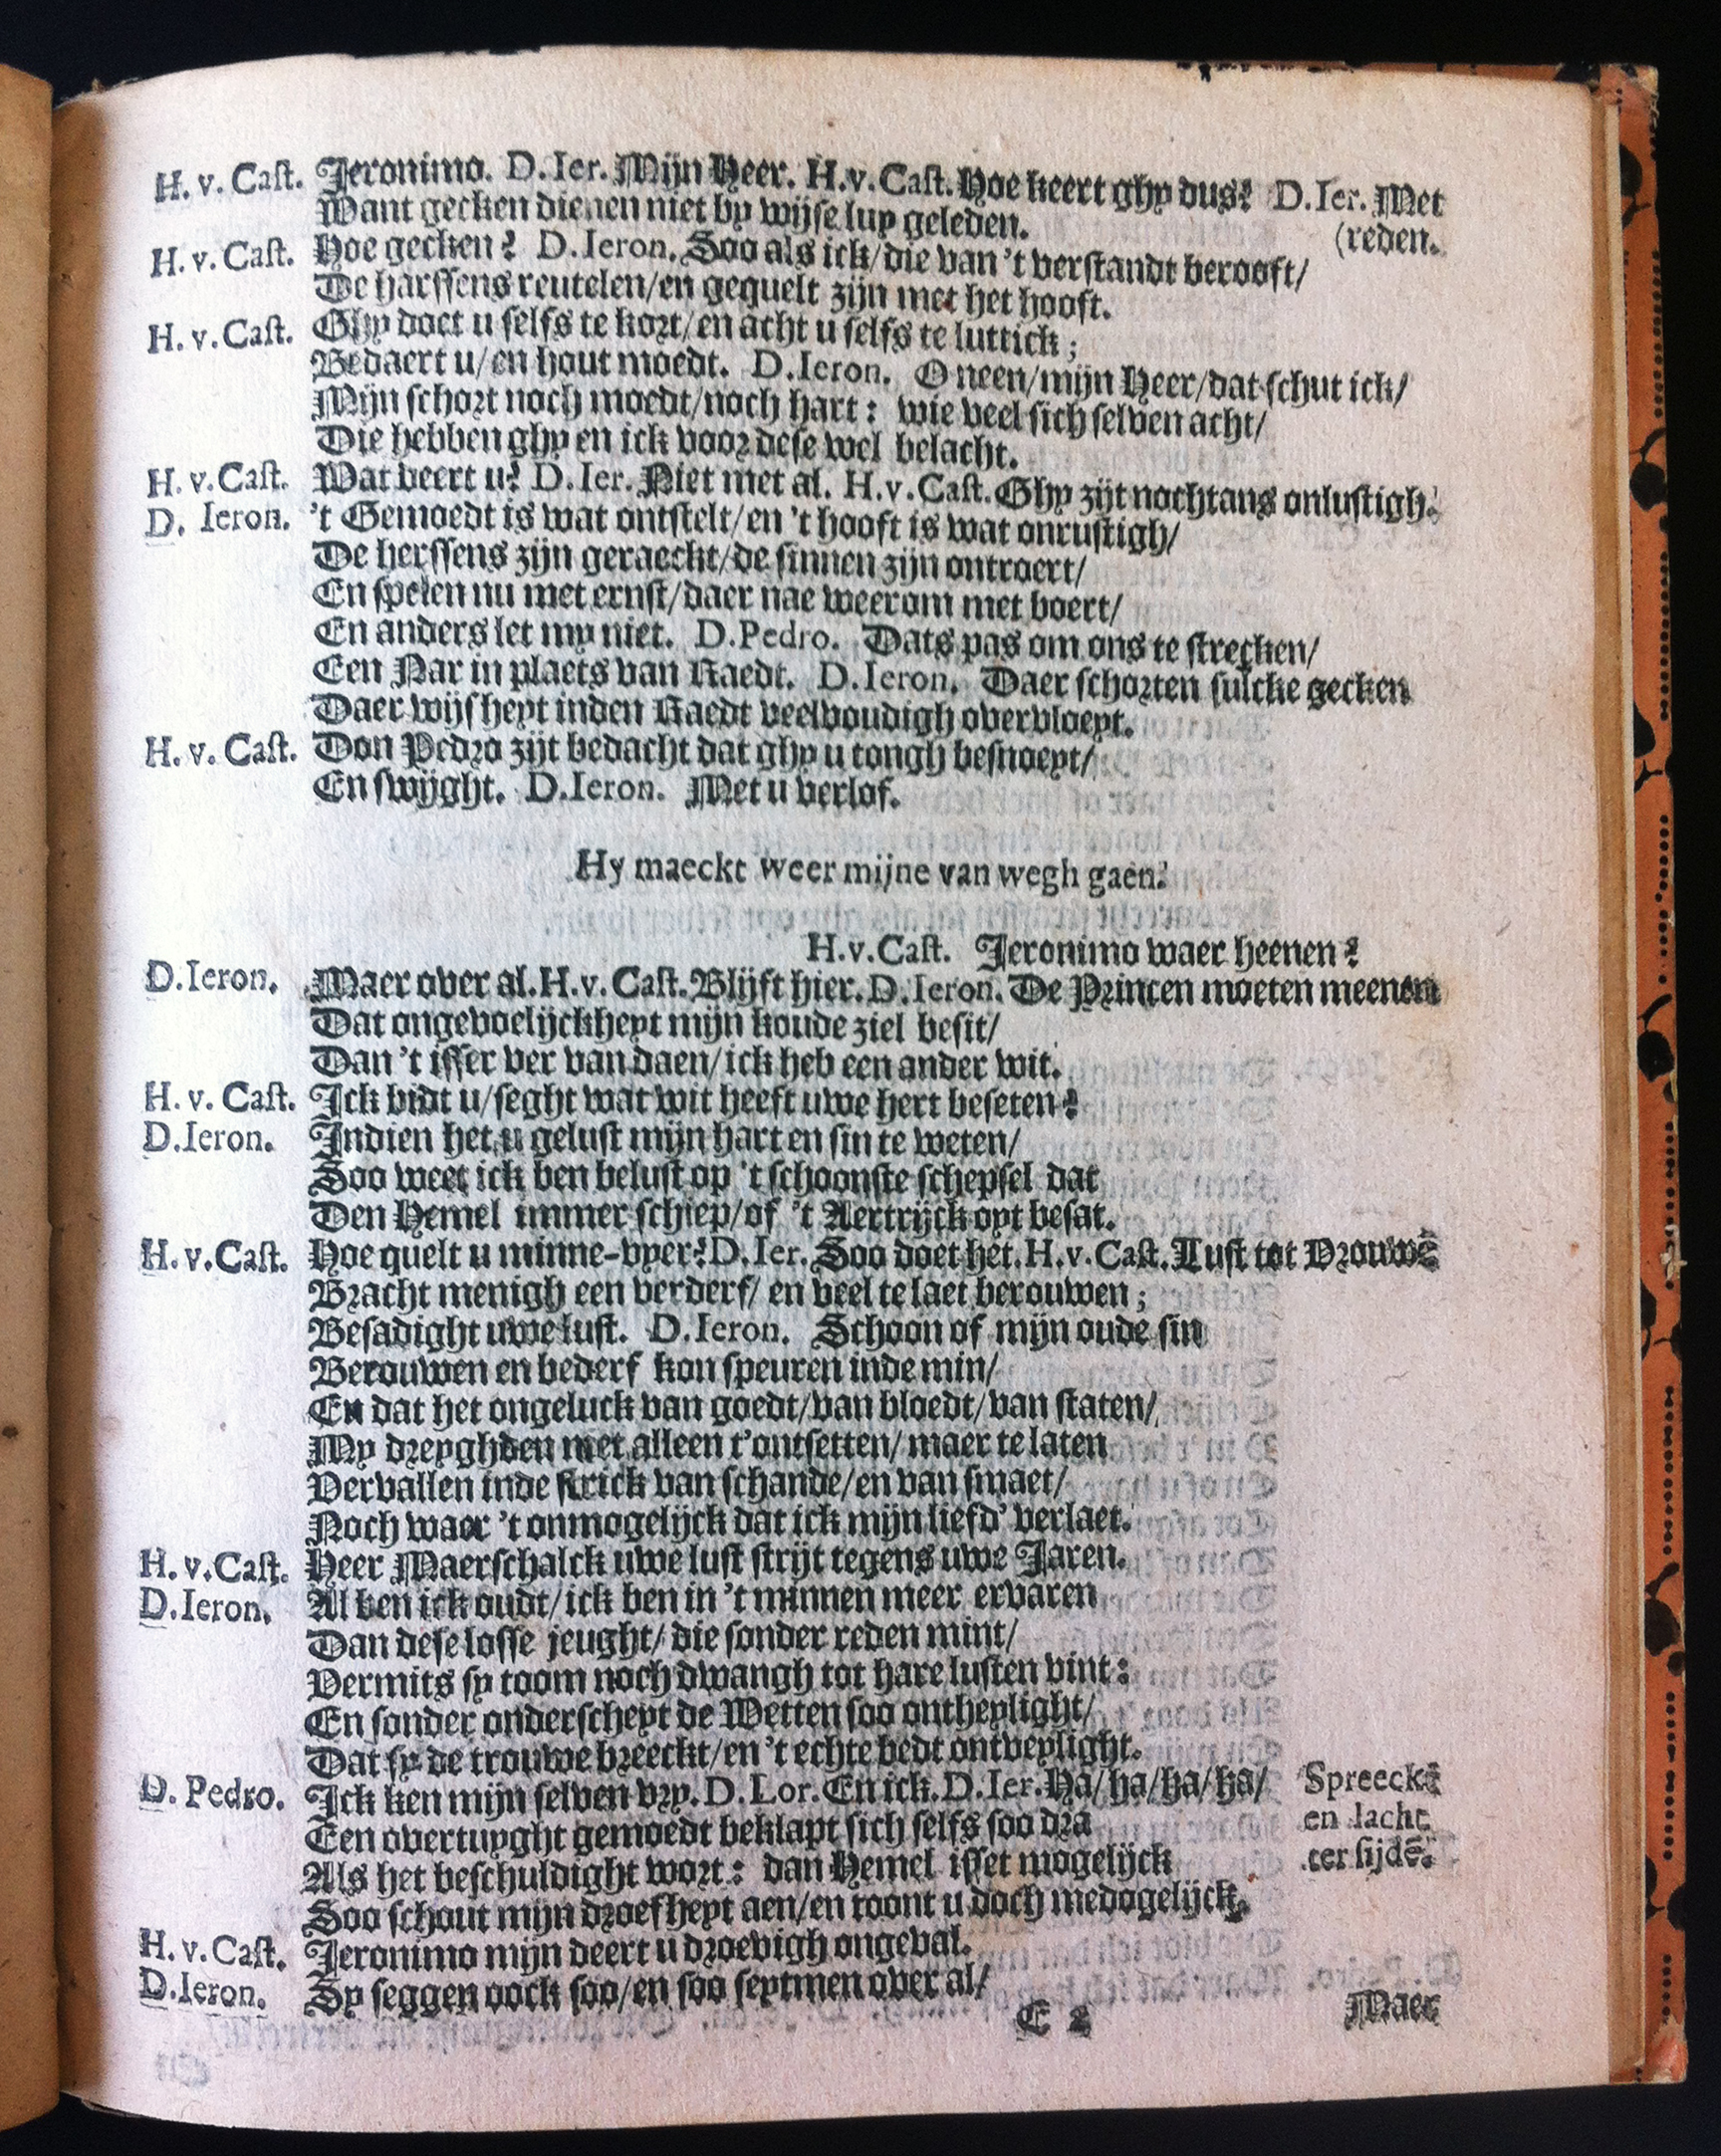 H. v. Cast. Jeronimo. D. Ier. Mijn Heer. H. v. Cast. Hoe keert ghy dus? D. Ier. Met
Want gecken dienen niet by wijse luy geleden. (reden.
H. v. Cast. Hoe gecken? D. Ieron. Soo als ick/die van 't verstandt berooft/
De harssens reutelen/en gequelt zijn met het hooft.
H. v. Cast. Ghy doet u selfs te kort/en acht u selfs te luttick;
Bedaert u/en hout moedt. D. Ieron. O neen/mijn Heer/dat schut ick/
Mijn schort noch moedt/noch hart: wie veel sich selven acht/
Die hebben ghy en ick voor dese wel belacht.
H. v. Cast. Wat deert u? D. Ier. Niet met al. H. v. Cast. Ghy zijt nochtans onlustigh.
D. Ieron. 't Gemoedt is wat ontstelt/en 't hooft is wat onrustigh/
De herssens zijn geraeckt/de sinnen zijn ontroert/
En spelen nu met ernst/daer nae weerom met boert/
En anders let my niet. D. Pedro. Dats pas om ons te strecken/
Een Nar in plaets van Raedt. D. Ieron. Daer schorten sulcke gecken
Daer wijsheyt inden Raedt veelvoudigh overvloeyt.
H. v. Cast. Don Pedro zijt bedacht dat ghy u tongh besnoeyt/
En swijght. D. Ieron. Met u verlof.
Hy maeckt weer mijne van wegh gaen.
H. v. Cast. Jeronimo waer heenen?
D. Ieron. Maer over al. H. v. Cast. Blijft hier. D. Ieron. De Princen moeten meenen
Dat ongevoelijckheyt mijn koude ziel besit/
Dan 't isser ver van daen/ick heb een ander wit.
H. v. Cast. Ick bidt u/seght wat wit heeft uwe hert beseten?
D. Ieron. Indien het u gelust mijn hart en sin te weten/
Soo weet ick ben belust op 't schoonste schepsel dat
Den Hemel immer schiep/of 't Aertrijck oyt besat.
H. v. Cast. Hoe quelt u minne-vyer? D. Ier. Soo doet het. H. v. Cast. Lust tot Vrouwẽ
Bracht menigh een verderf/ en veel te laet berouwen;
Besadight uwe lust. D. Ieron. Schoon of mijn oude sin
Berouwen en bederf kon speuren inde min/
En dat het ongeluck van goedt/van bloedt/van staten/
My dreyghden niet alleen t'ontsetten/ maer te laten
Vervallen inde strick van schande/en van smaet/
Noch waer 't onmogelijck dat ick mijn liefd' verlaet.
H. v. Cast. Heer Maerschalck uwe lust strijt tegens uwe Jaren.
D. Ieron. Al ben ick oudt/ick ben in 't minnen meer ervaren
Dan dese losse jeught/ die sonder reden mint/
Vermits sy toom noch dwangh tot hare lusten vint:
En sonder onderscheyt de Wetten soo ontheylight/
Dat sy de trouwe breeckt/en 't echte bedt ontveylight.
D. Pedro. Ick ken mijn selven vry. D. Lor. En ick. D. Ier. Ha/ha/ha/ha/ Spreeckt
Een overtuyght gemoedt beklapt sich selfs soo dra en lacht
Als het beschuldight wort: dan Hemel isset mogelijck ter sijdẽ.
Soo schout mijn droefheyt aen/en toont u doch medogelijck.
H. v. Cast. Jeronimo mijn deert u droevigh ongeval.
D. Ieron. Sy seggen oock soo/en soo seytmen over al/
E 2 Maer